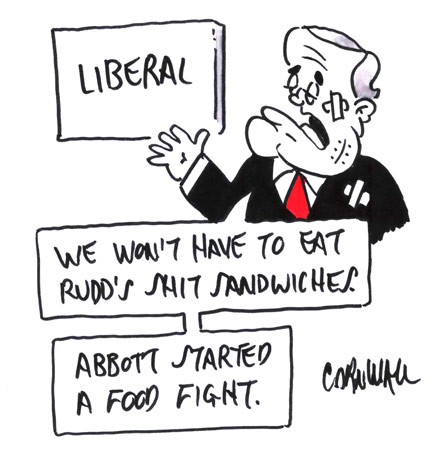 LIBERAL
WE WON'T HAVE TO EAT
RUDD'S SHIT SANDWICHES.
ABBOTT STARTED
A FOOD FIGHT.
CORNWALL